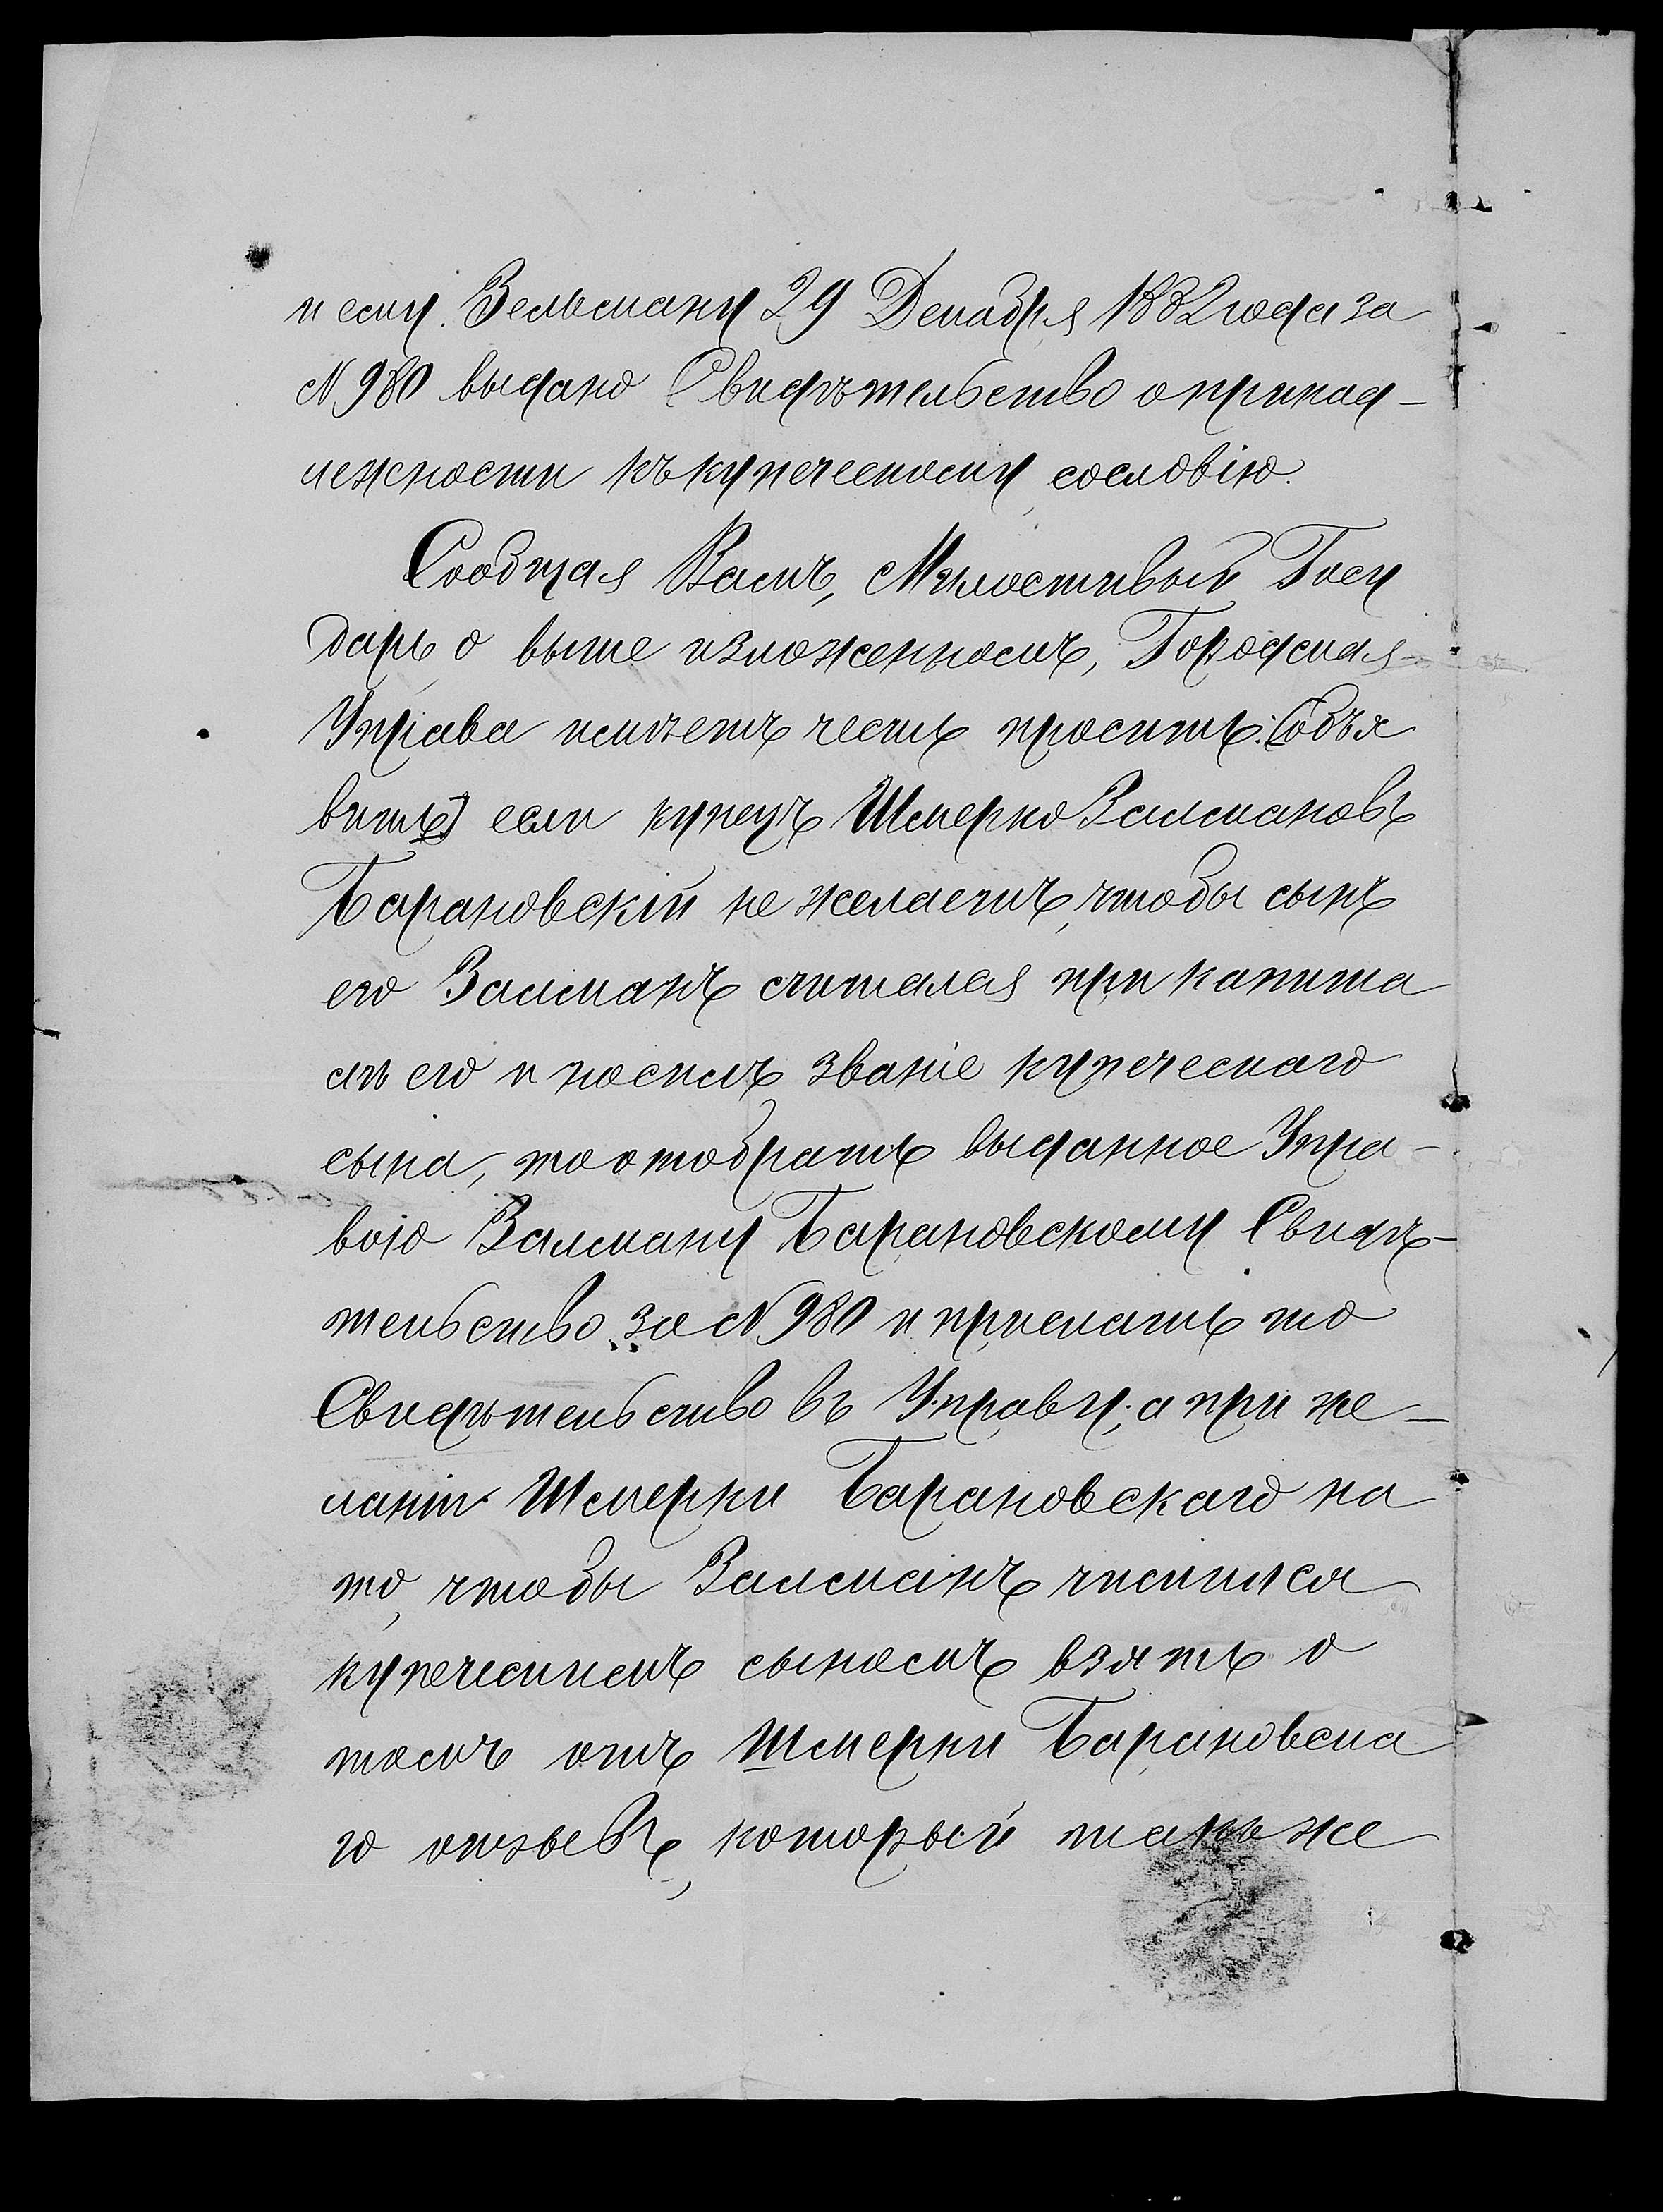 и ему Зельману 29 Декабря 1882 года за
№ 980 выдано Свидѣтельство о принад-
лежности къ купеческому сословію.
Сообщая Вамъ, Милостивый Госу
дарь о выше изложенномъ, Городская
Управа имѣетъ честь просить: [объя
вить] если купецъ Шмерко Залмановъ
Барановскій не желаетъ, чтобы сынъ
его Залманъ считался при капита
лѣ его и носилъ званіе купеческаго
сына, то отобрать выданное Упра-
вою Залману Барановскому Свидѣ-
тельство за № 980 и прислать то
Свидѣтельство въ Управу; а при же-
ланіи Шмерки Барановскаго на
то, чтобы Залманъ числился
купеческимъ сыномъ взять о
томъ отъ Шмерки Барановска
го отзывъ, который также